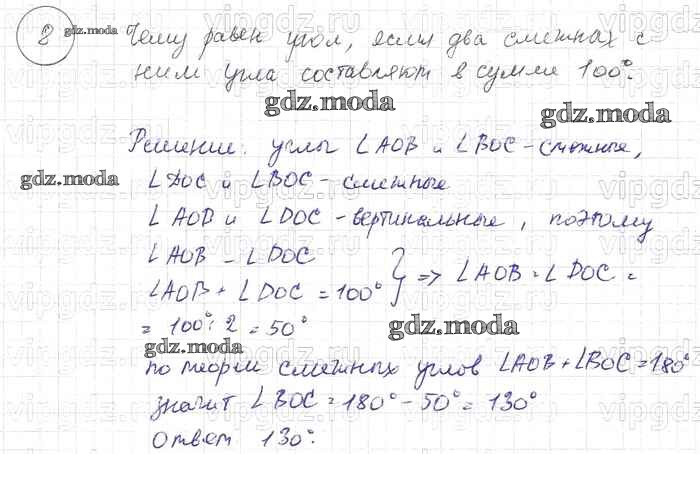 8 gdz.moda Чему равен угол, если два смежнах с
ним угла составляют в сумме 100°.
gdz.moda
gdz.moda
Решение: углы ∠AOB и ∠BOC - смежные,
gdz.moda
∠DOC и ∠BOC - смежные
∠AOB и ∠DOC - вертикальные, поэтому
∠AOB = ∠DOC
∠AOB + ∠DOC = 100° } => ∠AOB = ∠DOC =
= 100° : 2 = 50°
gdz.moda
gdz.moda
по теорем смежных углов ∠AOB + ∠BOC = 180°
значит ∠BOC = 180° - 50° = 130°
Ответ 130°.